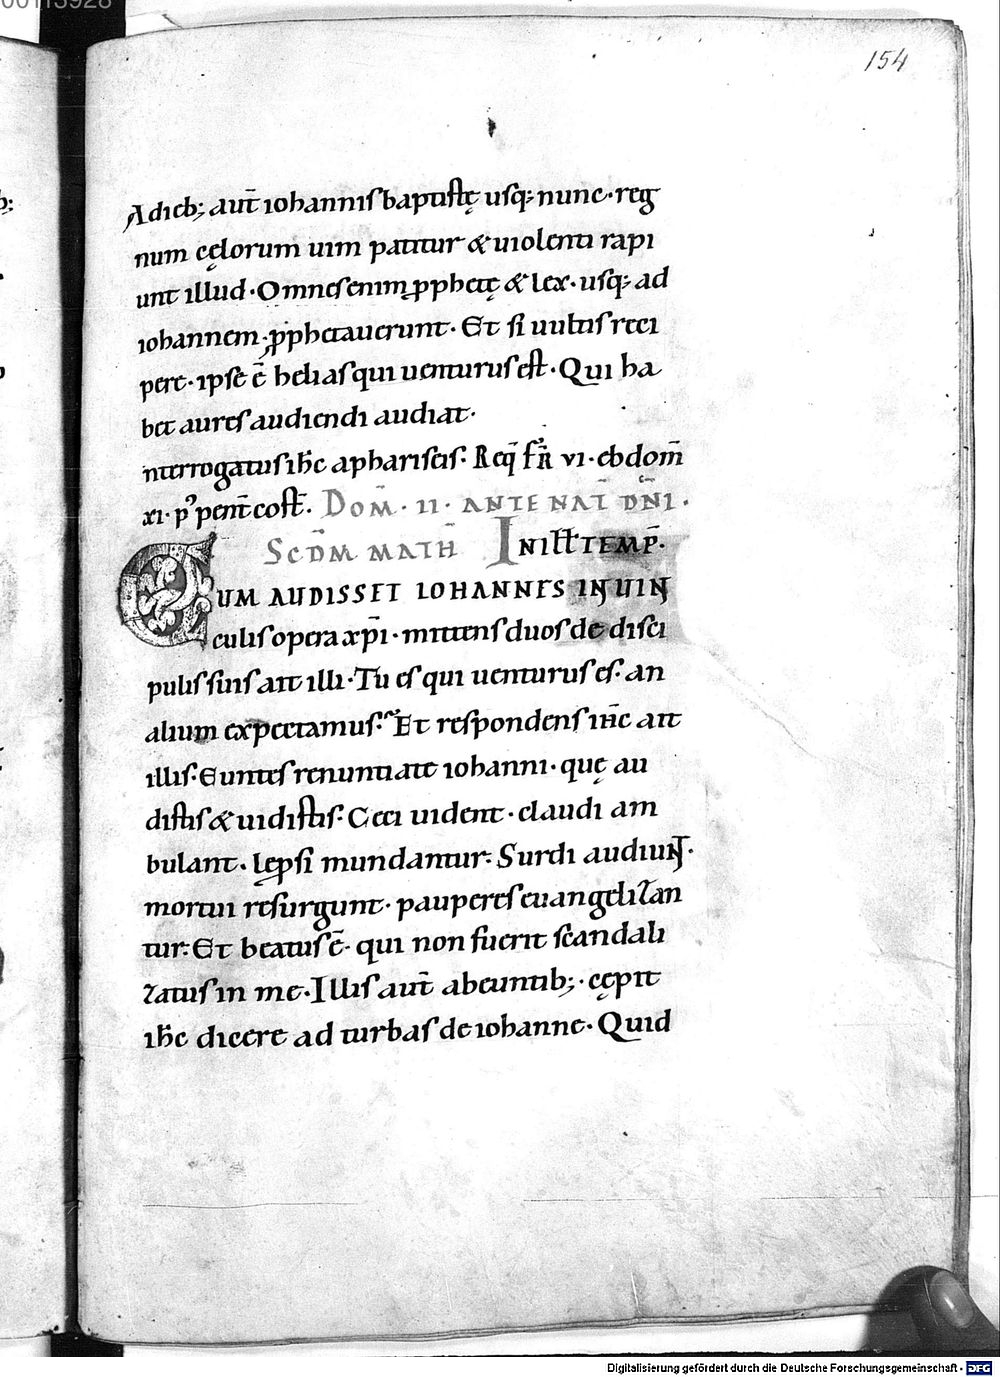 00113928
154
Adieb; aut̄ iohannis baptistę usq; nunc · reg
num cęlorum uim patitur & uiolenti rapi
unt illud · Omnes enim ꝓphetę & lex · usq; ad
iohannem ꝓphetauerunt · Et si uultis reci
pere · ipse ē helias qui uenturus est · Qui ha
bet aures audiendi audiat ·
nterrogatus ih̄c a phariseis · Req̄ vi · ebdom̄
xi · pꝰ pent̄ cost̄ · Dom̄ · ii · ante nat̄ dn̄i ·
Scd̄m math̄ In ill̄ temp̄ ·
Cum audisset iohannes in uin
culis opera xp̄i · mittens duos de disci
pulis suis ait illi · Tu es qui uenturus es · an
alium expectamus · Et respondens ih̄c ait
illis · Euntes renuntiate iohanni · quę au
distis & uidistis · Ceci uident · claudi am
bulant · lepsi mundantur · Surdi audiunt ·
mortui resurgunt · pauperes euangelizan
tur · Et beatus ē · qui non fuerit scandali
zatus in me · Illis aut̄ abeuntib; · cępit
ih̄c dicere ad turbas de iohanne · Quid
Digitalisierung gefördert durch die Deutsche Forschungsgemeinschaft - DFG